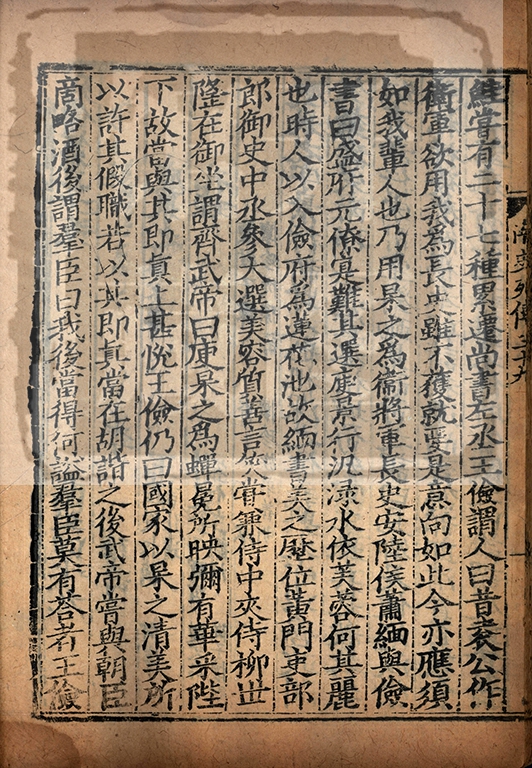 鮭嘗有二十七種累遷尚書左丞王儉謂人曰昔袁公作
衛軍欲用我爲長史雖不獲就要是意向如此今亦應須
如我輩人也乃用杲之爲衛將軍長史安陸侯蕭緬與儉
書曰盛府元僚寔難其選庾景行汎淥水依芙蓉何其麗
也時人以入儉府爲蓮花池故緬書美之歷位黃門吏部
郎御史中丞參大選美容質善言笑嘗兼侍中夾侍柳丗
隆在御坐謂齊武帝曰庾杲之爲蟬冕所映彌有華采陛
下故當與其即真上甚悅王儉仍曰國家以杲之清美所
以許其假職若以其即真當在胡諧之後武帝嘗與朝臣
商略酒後謂羣臣曰我後當得何謚羣臣莫有荅者王儉